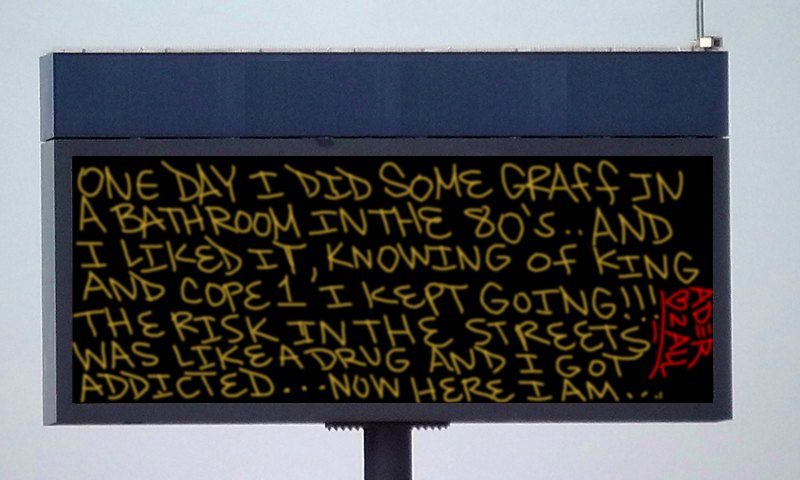 ONE DAY I DID SOME GRAFF IN
A BATHROOM IN THE 80'S.. AND
I LIKED IT, KNOWING OF KING
AND COPE 1 I KEPT GOING!!!
THE RISK IN THE STREETS
WAS LIKE A DRUG AND I GOT
ADDICTED...NOW HERE I AM...
ADER
2 ALL